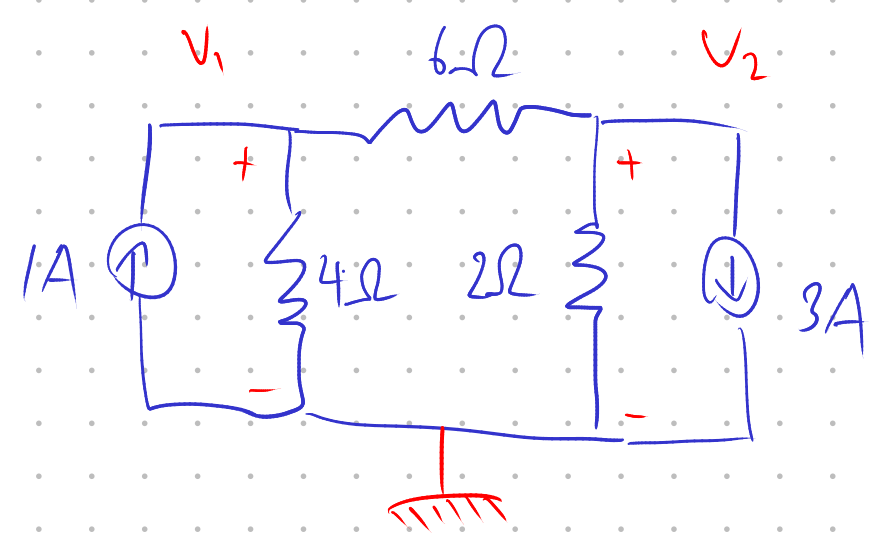 V₁ 6Ω V₂
+ +
1A 4Ω 2Ω 3A
- -